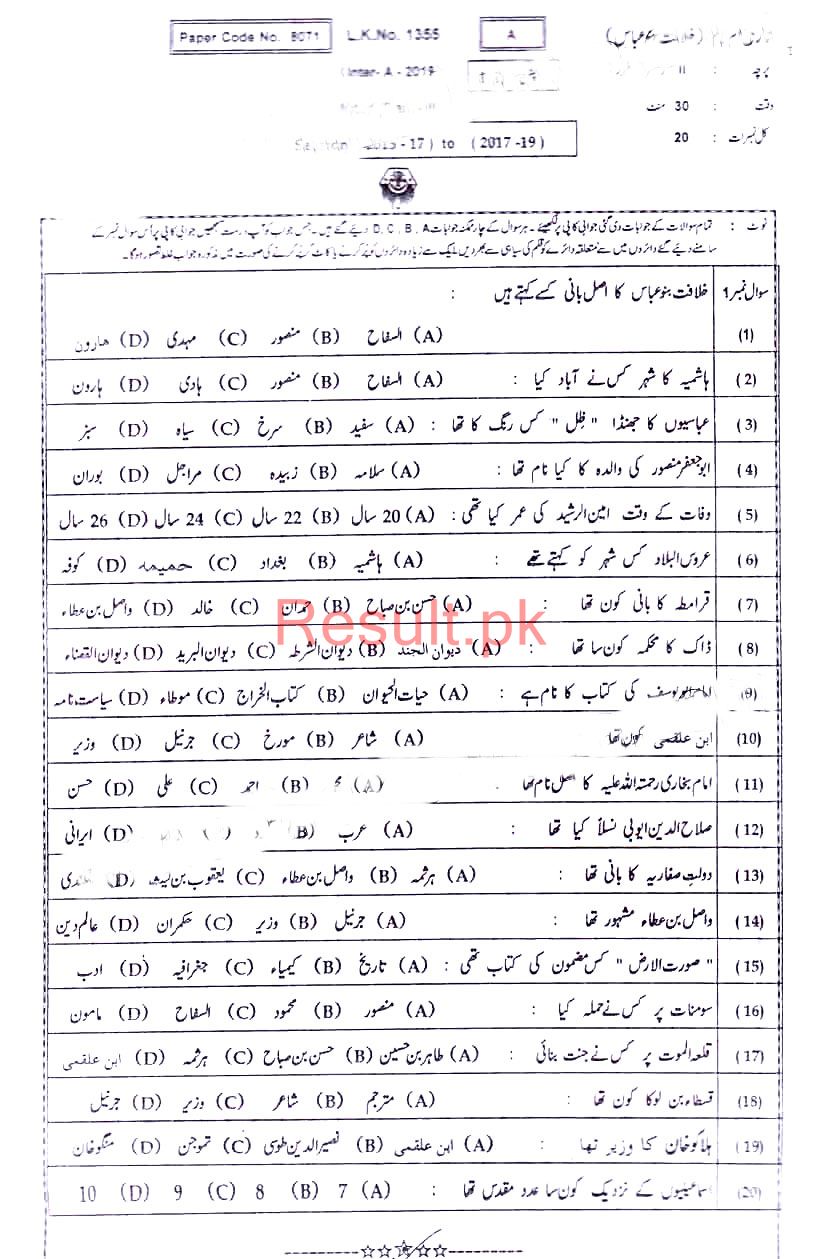 Paper Code No. 8071
L.K.No. 1355
A
(خلافت بنو عباس)
Inter- A - 2019
پرچہ : II
وقت : 30 منٹ
- 17 ) to ( 2017 -19 )
کل نمبرات : 20
نوٹ : تمام سوالات کے جوابات دی گئی جوابی کاپی پر لکھیئے۔ ہر سوال کے چار ممکنہ جوابات D, C, B, A دیئے گئے ہیں۔ جس جواب کو آپ درست سمجھیں جوابی کاپی پر اُس سوال نمبر کے
سامنے دیئے گئے دائروں میں سے متعلقہ دائرے کو قلم کی سیاہی سے بھر دیں۔ ایک سے زیادہ دائروں کو پُر کرنے یا کاٹ کر پُر کرنے کی صورت میں مذکورہ جواب غلط تصور ہو گا۔
سوال نمبر 1 خلافت بنو عباس کا اصل بانی کسے کہتے ہیں :
(1) (A) السفاح (B) منصور (C) مہدی (D) ھارون
(2) ہاشمیہ کا شہر کس نے آباد کیا : (A) السفاح (B) منصور (C) ہادی (D) ہارون
(3) عباسیوں کا جھنڈا " ظِل " کس رنگ کا تھا : (A) سفید (B) سرخ (C) سیاہ (D) سبز
(4) ابو جعفر منصور کی والدہ کا کیا نام تھا : (A) سلامہ (B) زبیدہ (C) مراجل (D) بوران
(5) وفات کے وقت امین الرشید کی عمر کیا تھی : (A) 20 سال (B) 22 سال (C) 24 سال (D) 26 سال
(6) عروس البلاد کس شہر کو کہتے تھے : (A) ہاشمیہ (B) بغداد (C) حمیمہ (D) کوفہ
(7) قرامطہ کا بانی کون تھا : (A) حسن بن صباح (B) حمدان (C) خالد (D) واصل بن عطاء
Result.pk
(8) ڈاک کا محکمہ کون سا تھا : (A) دیوان الجند (B) دیوان الشرطہ (C) دیوان البرید (D) دیوان القضاء
(9) امام ابو یوسف کی کتاب کا نام ہے : (A) حیات الحیوان (B) کتاب الخراج (C) موطاء (D) سیاست نامہ
(10) ابن علقمی کون تھا (A) شاعر (B) مورخ (C) جرنیل (D) وزیر
(11) امام بخاری رحمتہ اللہ علیہ کا اصل نام تھا : (A) محمد (B) احمد (C) علی (D) حسن
(12) صلاح الدین ایوبی نسلاً کیا تھا : (A) عرب (B) (D) ایرانی
(13) دولتِ صفاریہ کا بانی تھا : (A) ہرثمہ (B) واصل بن عطاء (C) یعقوب بن لیث (D)
(14) واصل بن عطاء مشہور تھا : (A) جرنیل (B) وزیر (C) حکمران (D) عالم دین
(15) " صورت الارض " کس مضمون کی کتاب تھی : (A) تاریخ (B) کیمیاء (C) جغرافیہ (D) ادب
(16) سومنات پر کس نے حملہ کیا : (A) منصور (B) محمود (C) السفاح (D) مامون
(17) قلعہ الموت پر کس نے جنت بنائی : (A) طاہر بن حسین (B) حسن بن صباح (C) ہرثمہ (D) ابن علقمی
(18) قسطاء بن لوکا کون تھا : (A) مترجم (B) شاعر (C) وزیر (D) جرنیل
(19) ہلاکو خان کا وزیر تھا : (A) ابن علقمی (B) نصیر الدین طوسی (C) تموجن (D) منگو خان
(20) اسماعیلیوں کے نزدیک کون سا عدد مقدس تھا : (A) 7 (B) 8 (C) 9 (D) 10